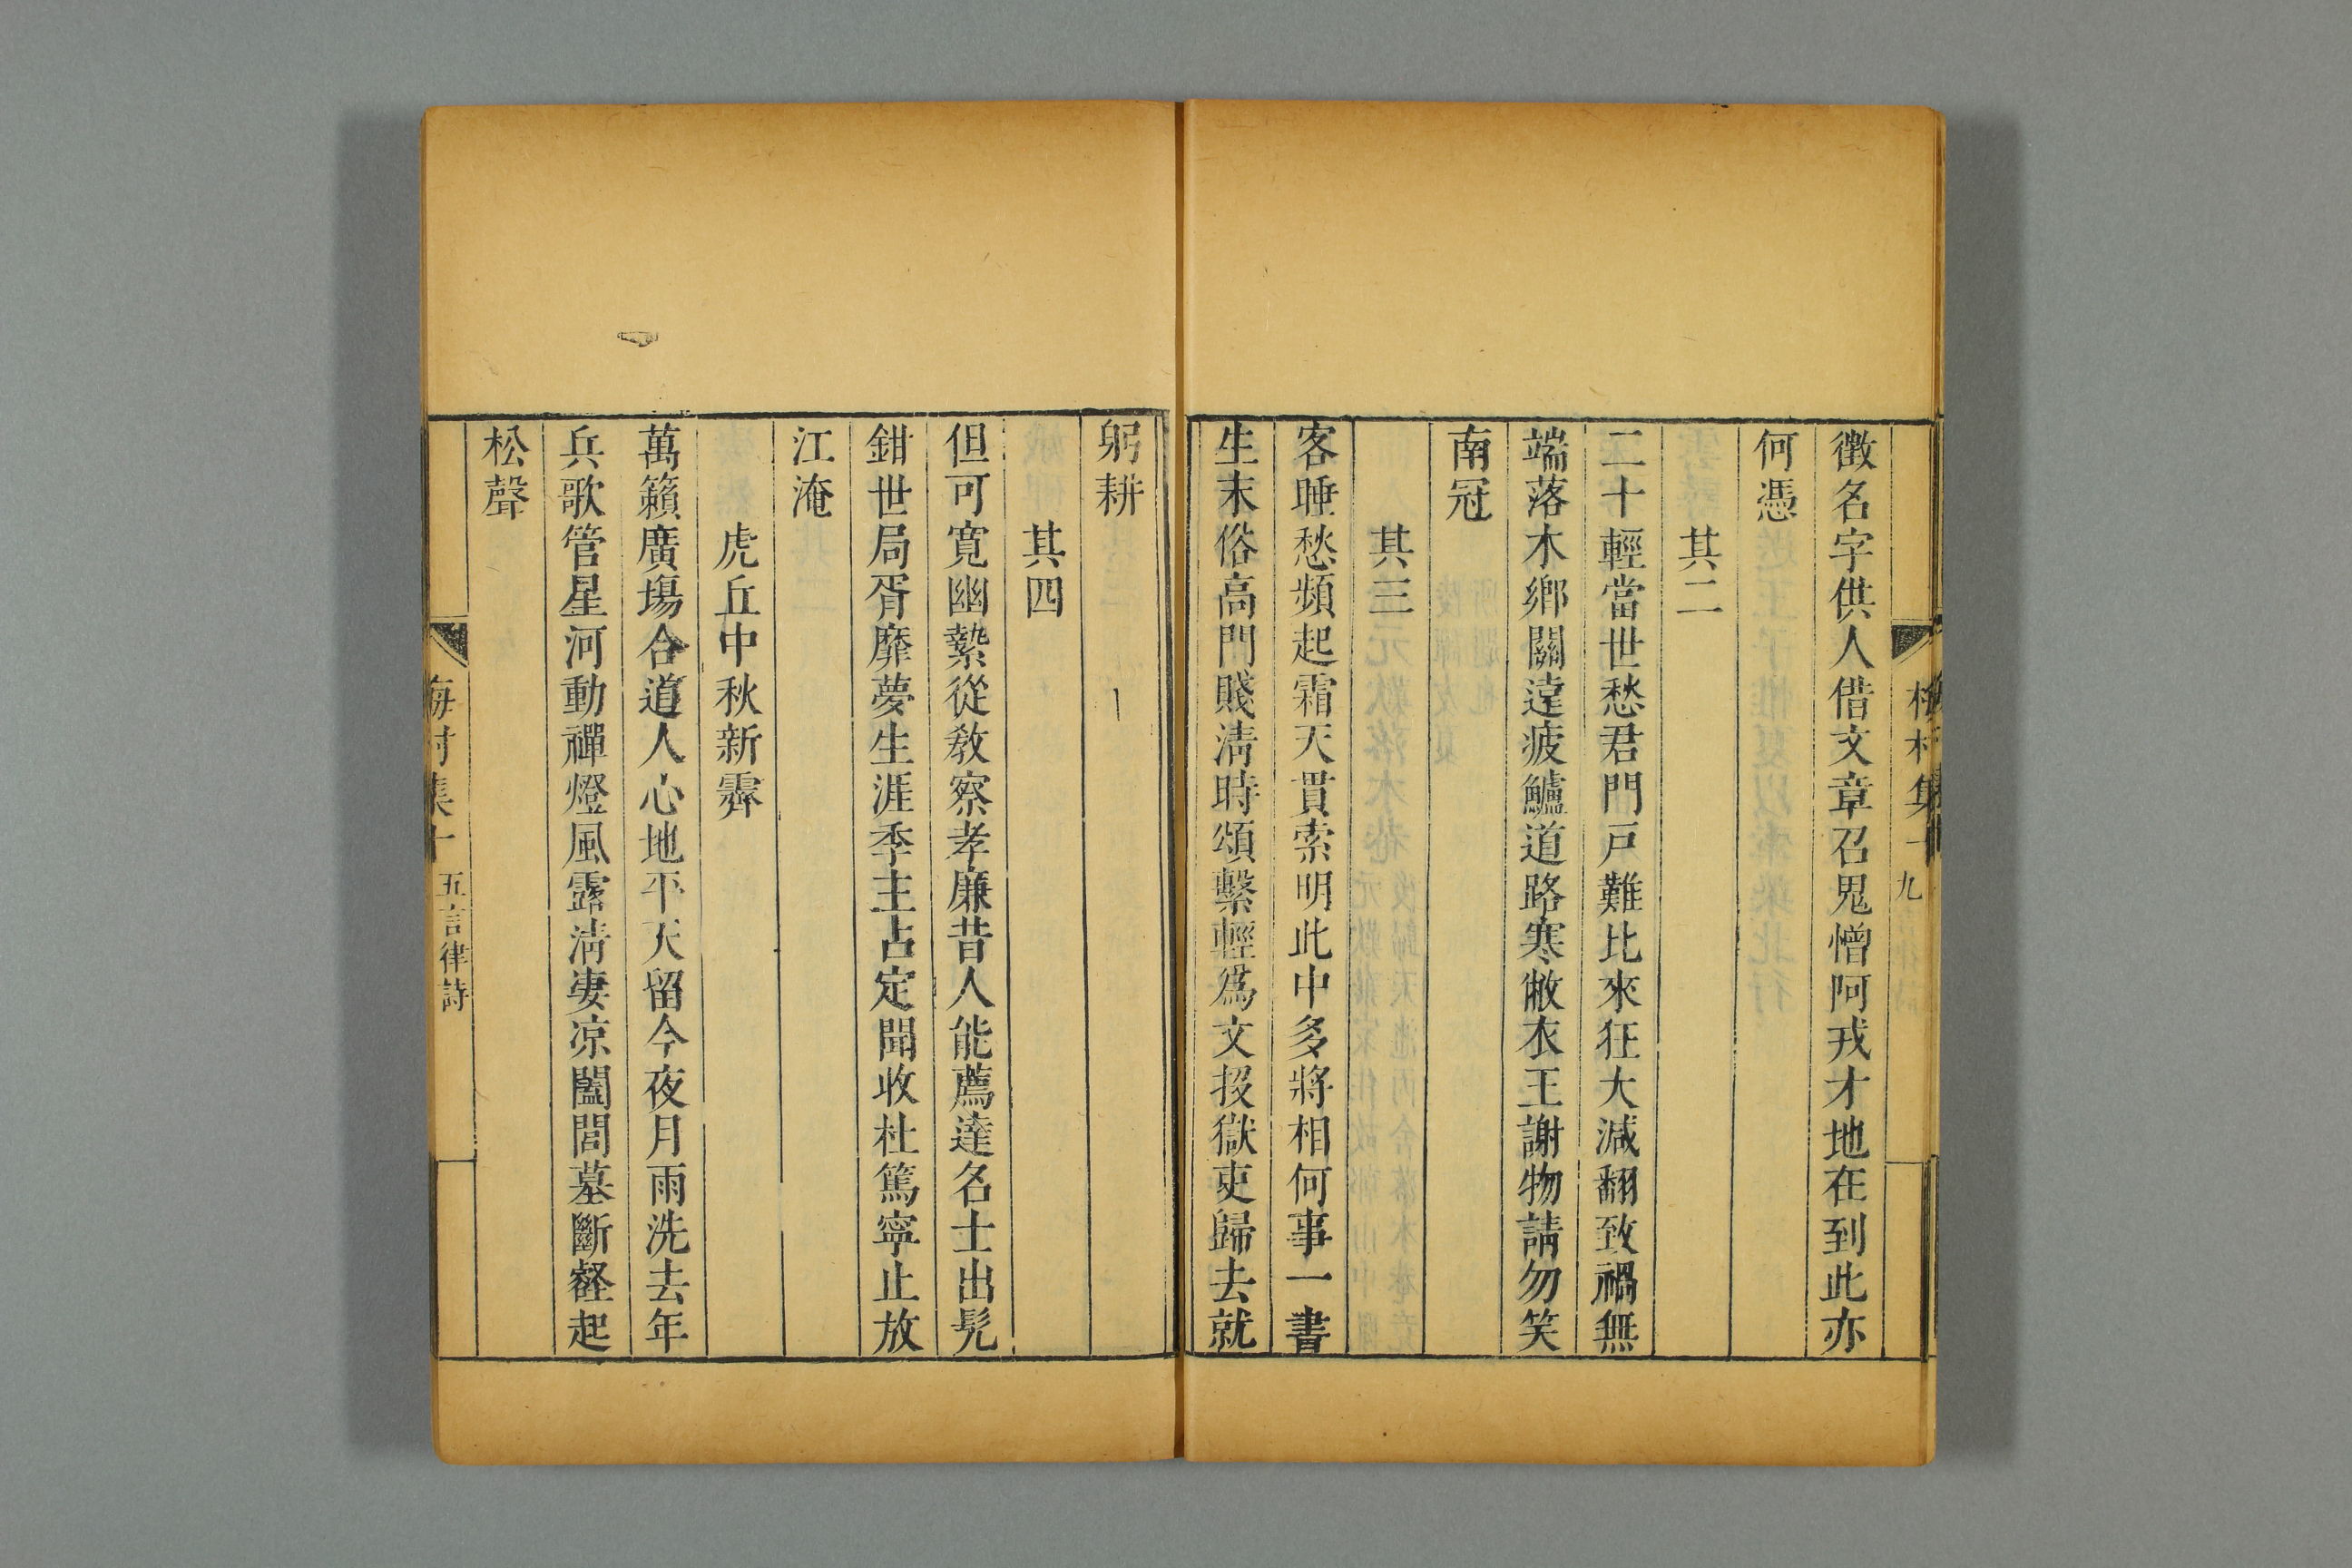 徵名字供人借文章召鬼憎阿戎才地在到此亦
何憑
其二
二十輕當世愁君門戸難比來狂大減翻致禍無
端落木鄉關遠疲驢道路寒敝衣王謝物請勿笑
南冠
其三
客睡愁頻起霜天貫索明此中多將相何事一書
生末俗高門賤淸時頌繫輕爲文投獄吏歸去就
躬耕
其四
但可寬幽縶從教察孝廉昔人能薦達名士出髡
鉗世局胥靡夢生涯季主占定聞收杜篤寧止放
江淹
虎丘中秋新霽
萬籟廣場合道人心地平天留今夜月雨洗去年
兵歌管星河動禪燈風露淸凄凉闔閭墓斷壑起
松聲
梅村集十
五言律詩
九